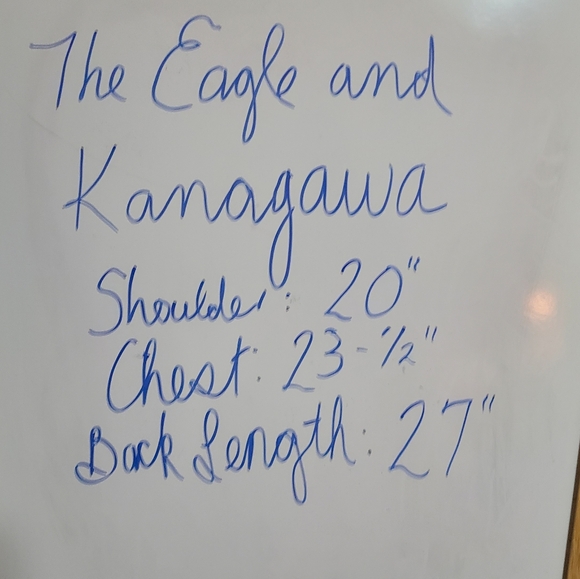 The Eagle and
Kanagawa
Shoulder: 20"
Chest: 23-1/2"
Back Length: 27"